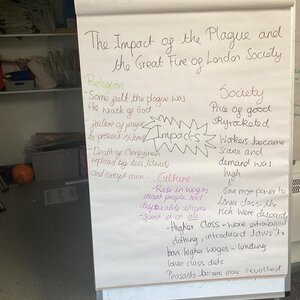 The Impact of the Plague and
the Great Fire of London Society
Religion
- Some felt the plague was
the wrath of God
- failure of prayer
to prevent
- Death of Clergymen
replaced by less
and corrupt men
Impacts
Society
Price of good
skyrocketed
Workers became
scarce and
demand was
high
Give more power to
lower class, the
rich were
Culture
Rise in wages
meant people had
disposable income
spent it on
- Higher Class - wore extravagant
clothing, introduced laws to
ban higher wages - limiting
lower class diets
Peasants became more rebellious